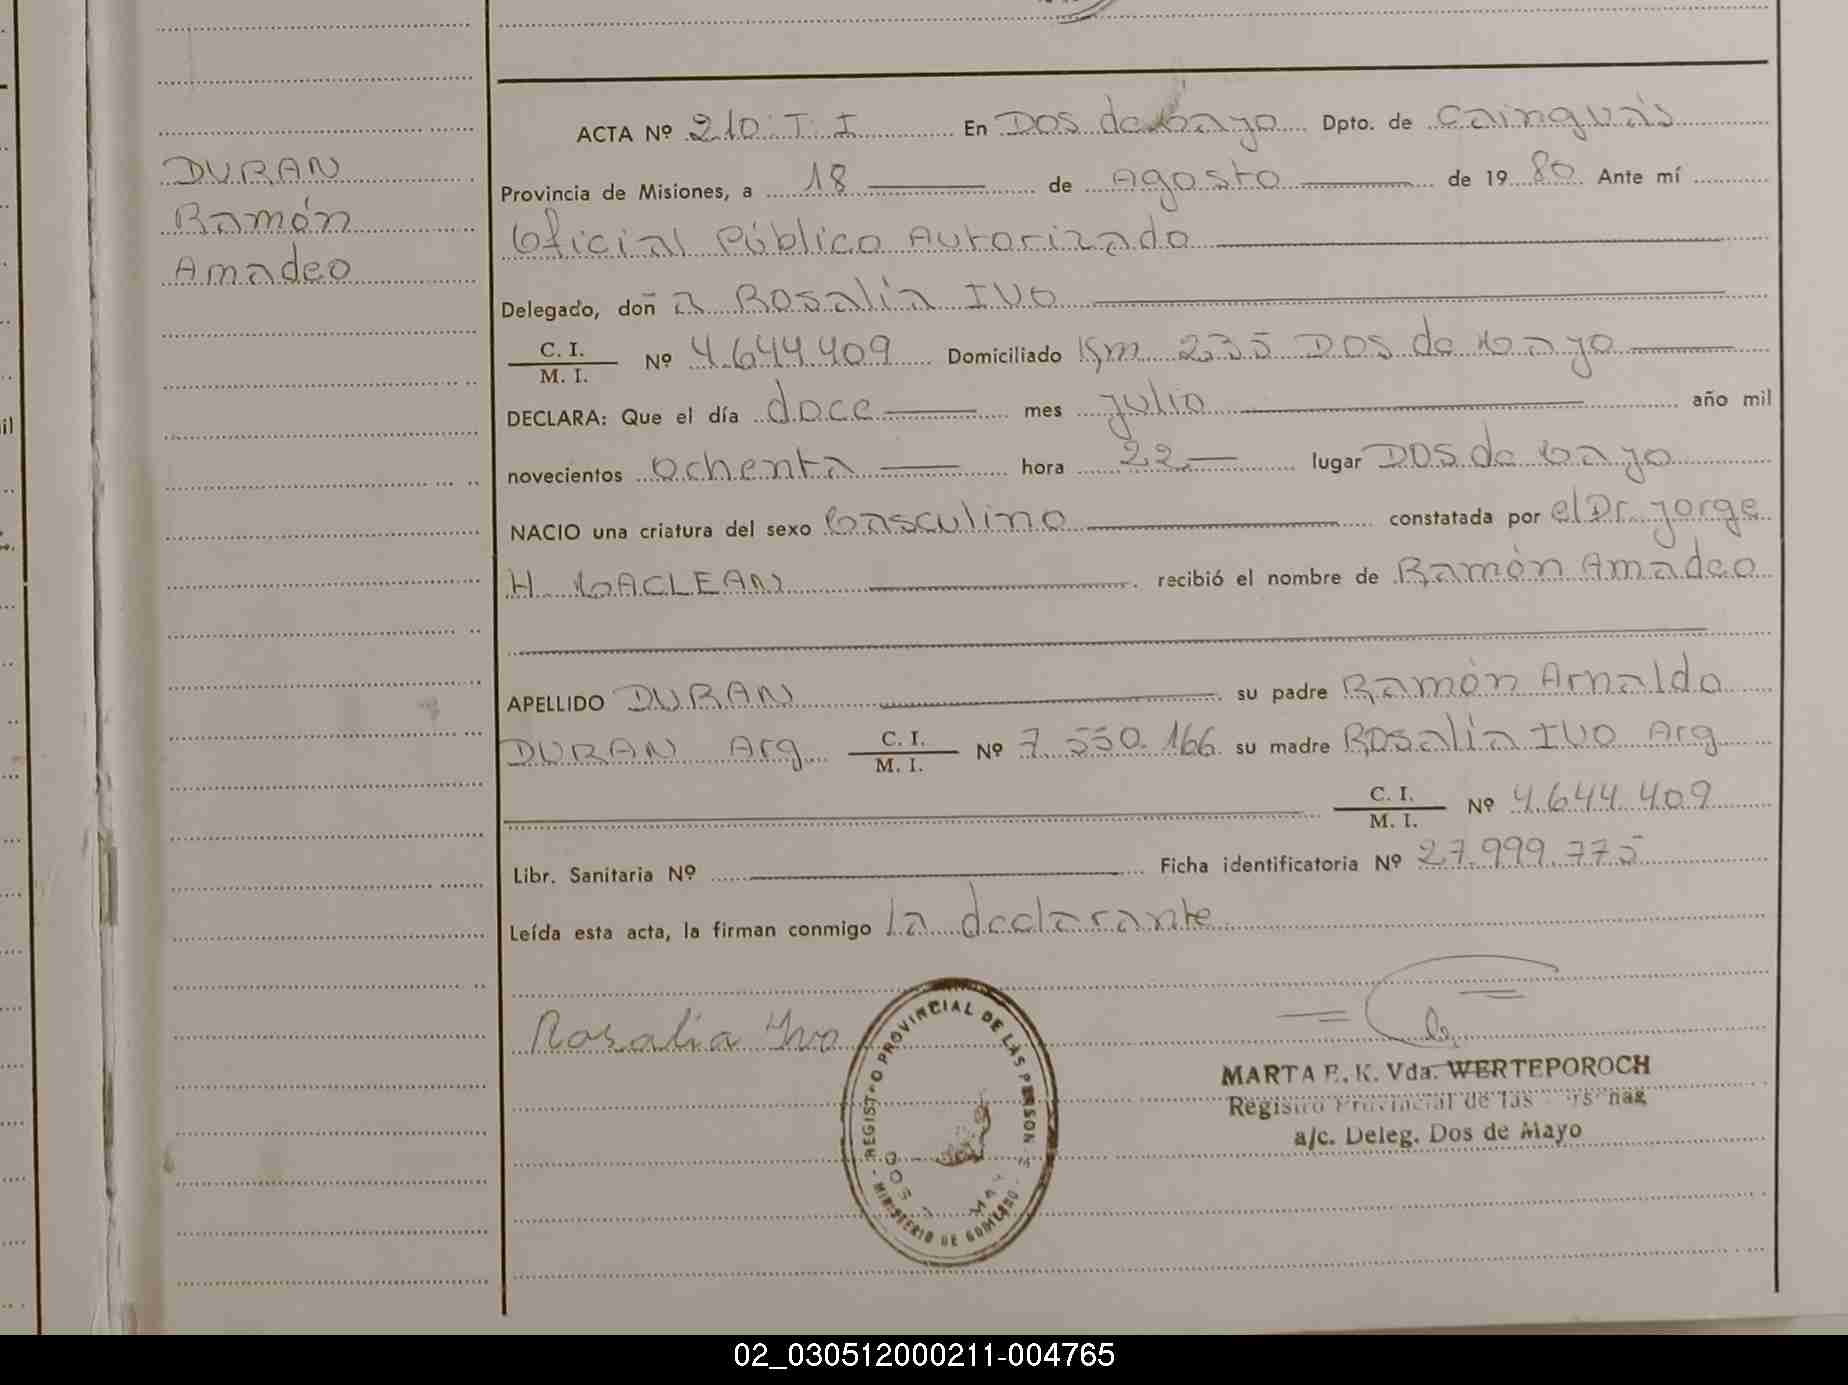 DURAN
Ramón
Amadeo
ACTA Nº 210 T. I En Dos de Mayo Dpto. de Cainguás
Provincia de Misiones, a 18 de Agosto de 1980 Ante mí
Oficial Público Autorizado
Delegado, doña Rosalia IVO
C. I.
M. I.
Nº 4.644.409 Domiciliado Km 235 Dos de Mayo
DECLARA: Que el día doce mes julio año mil
novecientos ochenta hora 22 lugar Dos de Mayo
NACIO una criatura del sexo Masculino constatada por el Dr. Jorge
H. MACLEAN recibió el nombre de Ramón Amadeo
APELLIDO DURAN su padre Ramón Arnaldo
DURAN Arg. C. I.
M. I.
Nº 7.550.166 su madre Rosalia IVO Arg
C. I.
M. I.
Nº 4.644.409
Libr. Sanitaria Nº Ficha identificatoria Nº 27.999.775
Leída esta acta, la firman conmigo la declarante
Rosalia Ivo
REGISTRO PROVINCIAL DE LAS PERSON
DOS MAY
MINISTERIO DE GOBIERNO
MARTA E. K. Vda. WERTEPOROCH
Registro Provincial de las Personas
a/c. Deleg. Dos de Mayo
il
02_030512000211-004765